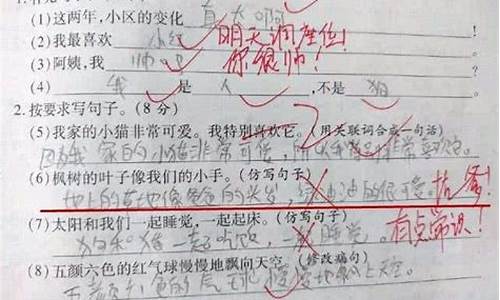 (1)这两年,小区的变化 真大啊
(2)我最喜欢 小红 明天调座位!
(3)阿姨,我 帅吧 你很帅!
(4) 我 是 人 ,不是 狗
2.按要求写句子。(8分)
(5)我家的小猫非常可爱。我特别喜欢它。(用关联词合成一句话)
因为我家的小猫非常可爱,所以我特别非常喜欢它。
(6)枫树的叶子像我们的小手。(仿写句子)
地上的草地像爸爸的头发,绿油油的很可爱。
(7)太阳和我们一起睡觉,一起起床。(仿写句子)
狗和猪一起吃饭,一起睡觉。有点常识!
(8)五颜六色的红气球慢慢地飘向天空。(修改病句)